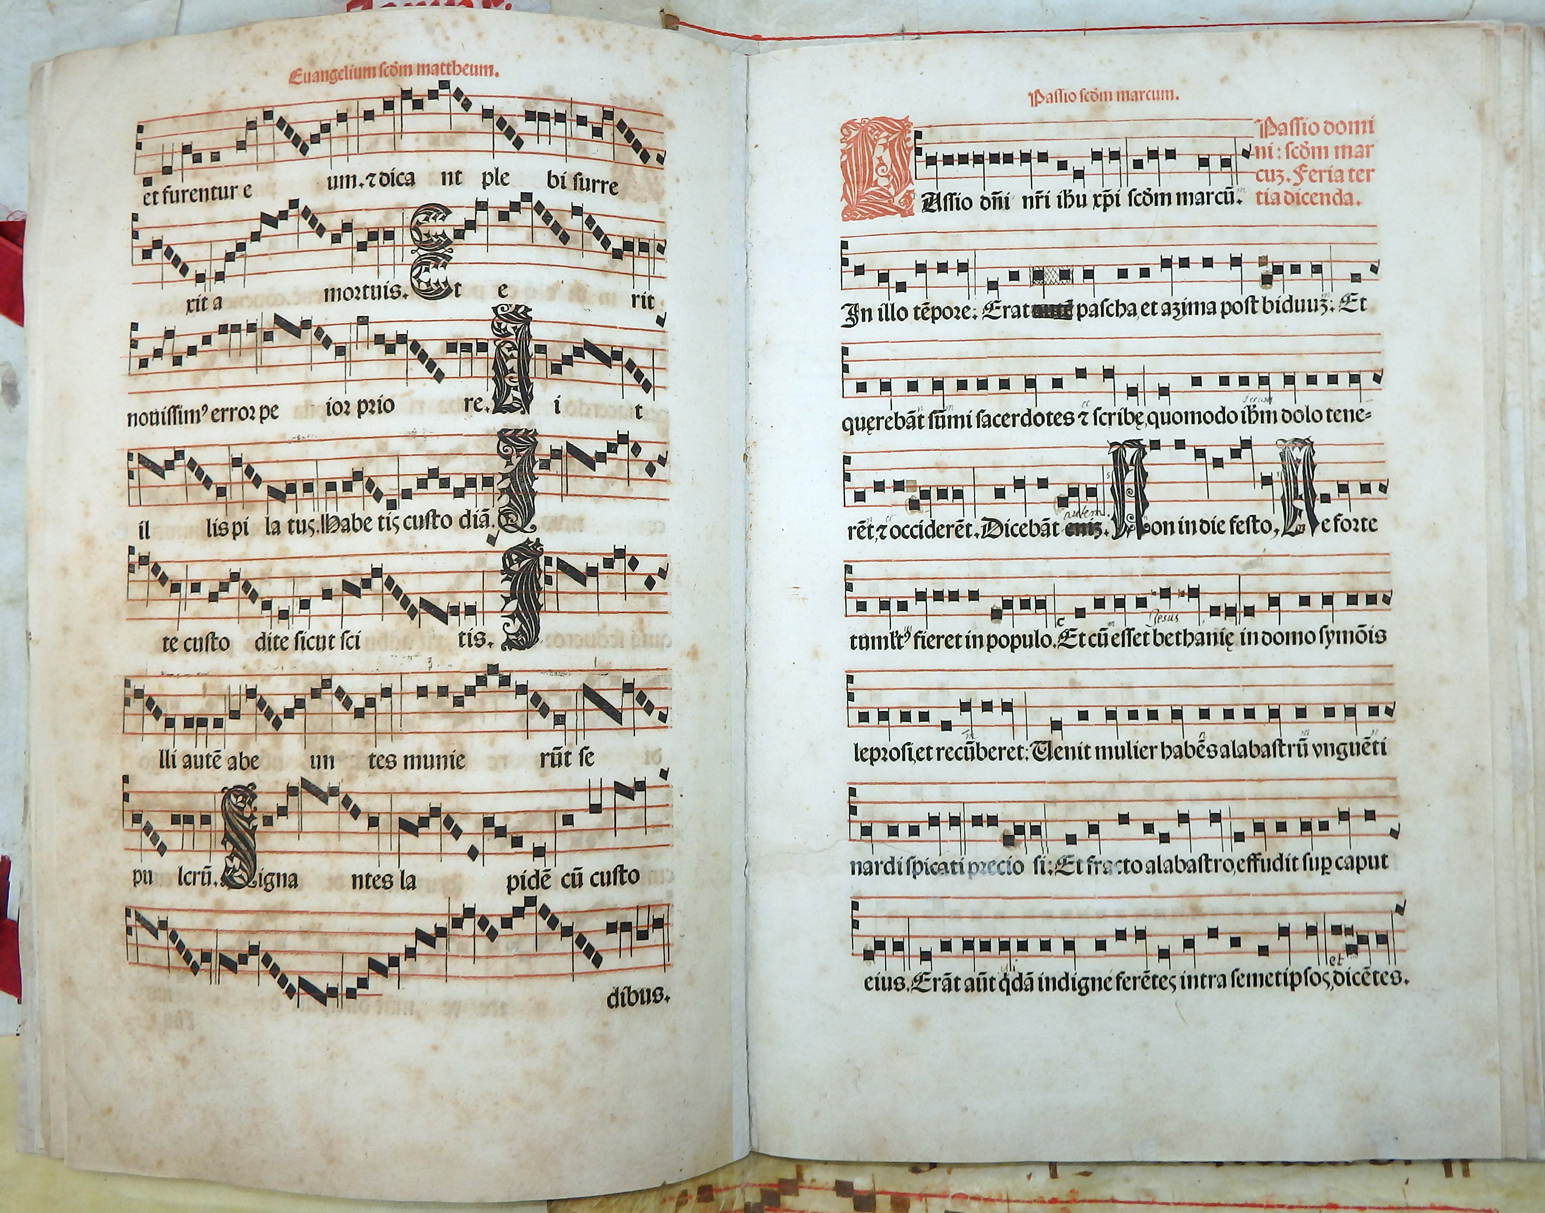 Euangelium scđm mattheum.
et furentur e um. ⁊ dica nt ple bi surre
xit a mortuis. Et e rit
nouissimꝰ error pe ior prio re. A i t
il lis pi la tus. Habe tis custo diā. I
te custo dite sicut sci tis. I
lli autē abe un tes munie rūt se
pu lcrū. Signa ntes la pidē cū custo
dibus.
Passio scđm marcum.
Passio domi
ni: scđm mar
cuʒ. Feria ter
tia dicenda.
PAssio dn̄i nr̄i ihu xp̄i scđm marcū.
In illo tēpore: Erat autē pascha et azima post biduuʒ: Et
querebāt sūmi sacerdotes ⁊ scribę, quomodo ihm dolo tene⸗
rēt, ⁊ occiderēt. Dicebāt eniʒ. autem Non in die festo, Ne forte
tumltꝰ fieret in populo. Et cū esset Jesus bethanię in domo symōis
leprosi, et recūberet: Uenit mulier habēs alabastrū vnguēti
nardi spicati precio si: Et fracto alabastro, effudit sup̱ caput
eius. Erāt aūt q̇dā indigne ferētes intra semetipsos, et dicētes.